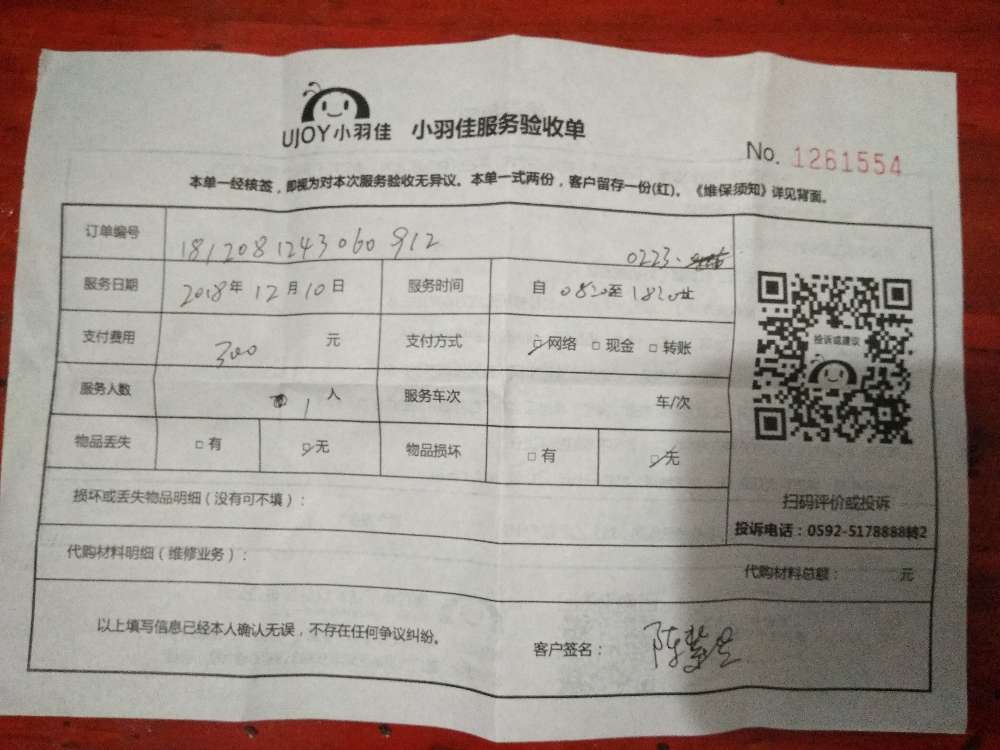 UJOY小羽佳 小羽佳服务验收单
No. 1261554
本单一经核签，即视为对本次服务验收无异议。本单一式两份，客户留存一份(红)。《维保须知》详见背面。
订单编号 1812081243060912 0223.
服务日期 2018年12月10日 服务时间 自0820至1820止
支付费用 300 元 支付方式 网络 现金 转账
服务人数 1 人 服务车次 车/次
物品丢失 有 无 物品损坏 有 无
投诉或建议
扫码评价或投诉
投诉电话：0592-5178888转2
损坏或丢失物品明细（没有可不填）：
代购材料明细（维修业务）：
代购材料总额： 元
以上填写信息已经本人确认无误，不存在任何争议纠纷。
客户签名：陈